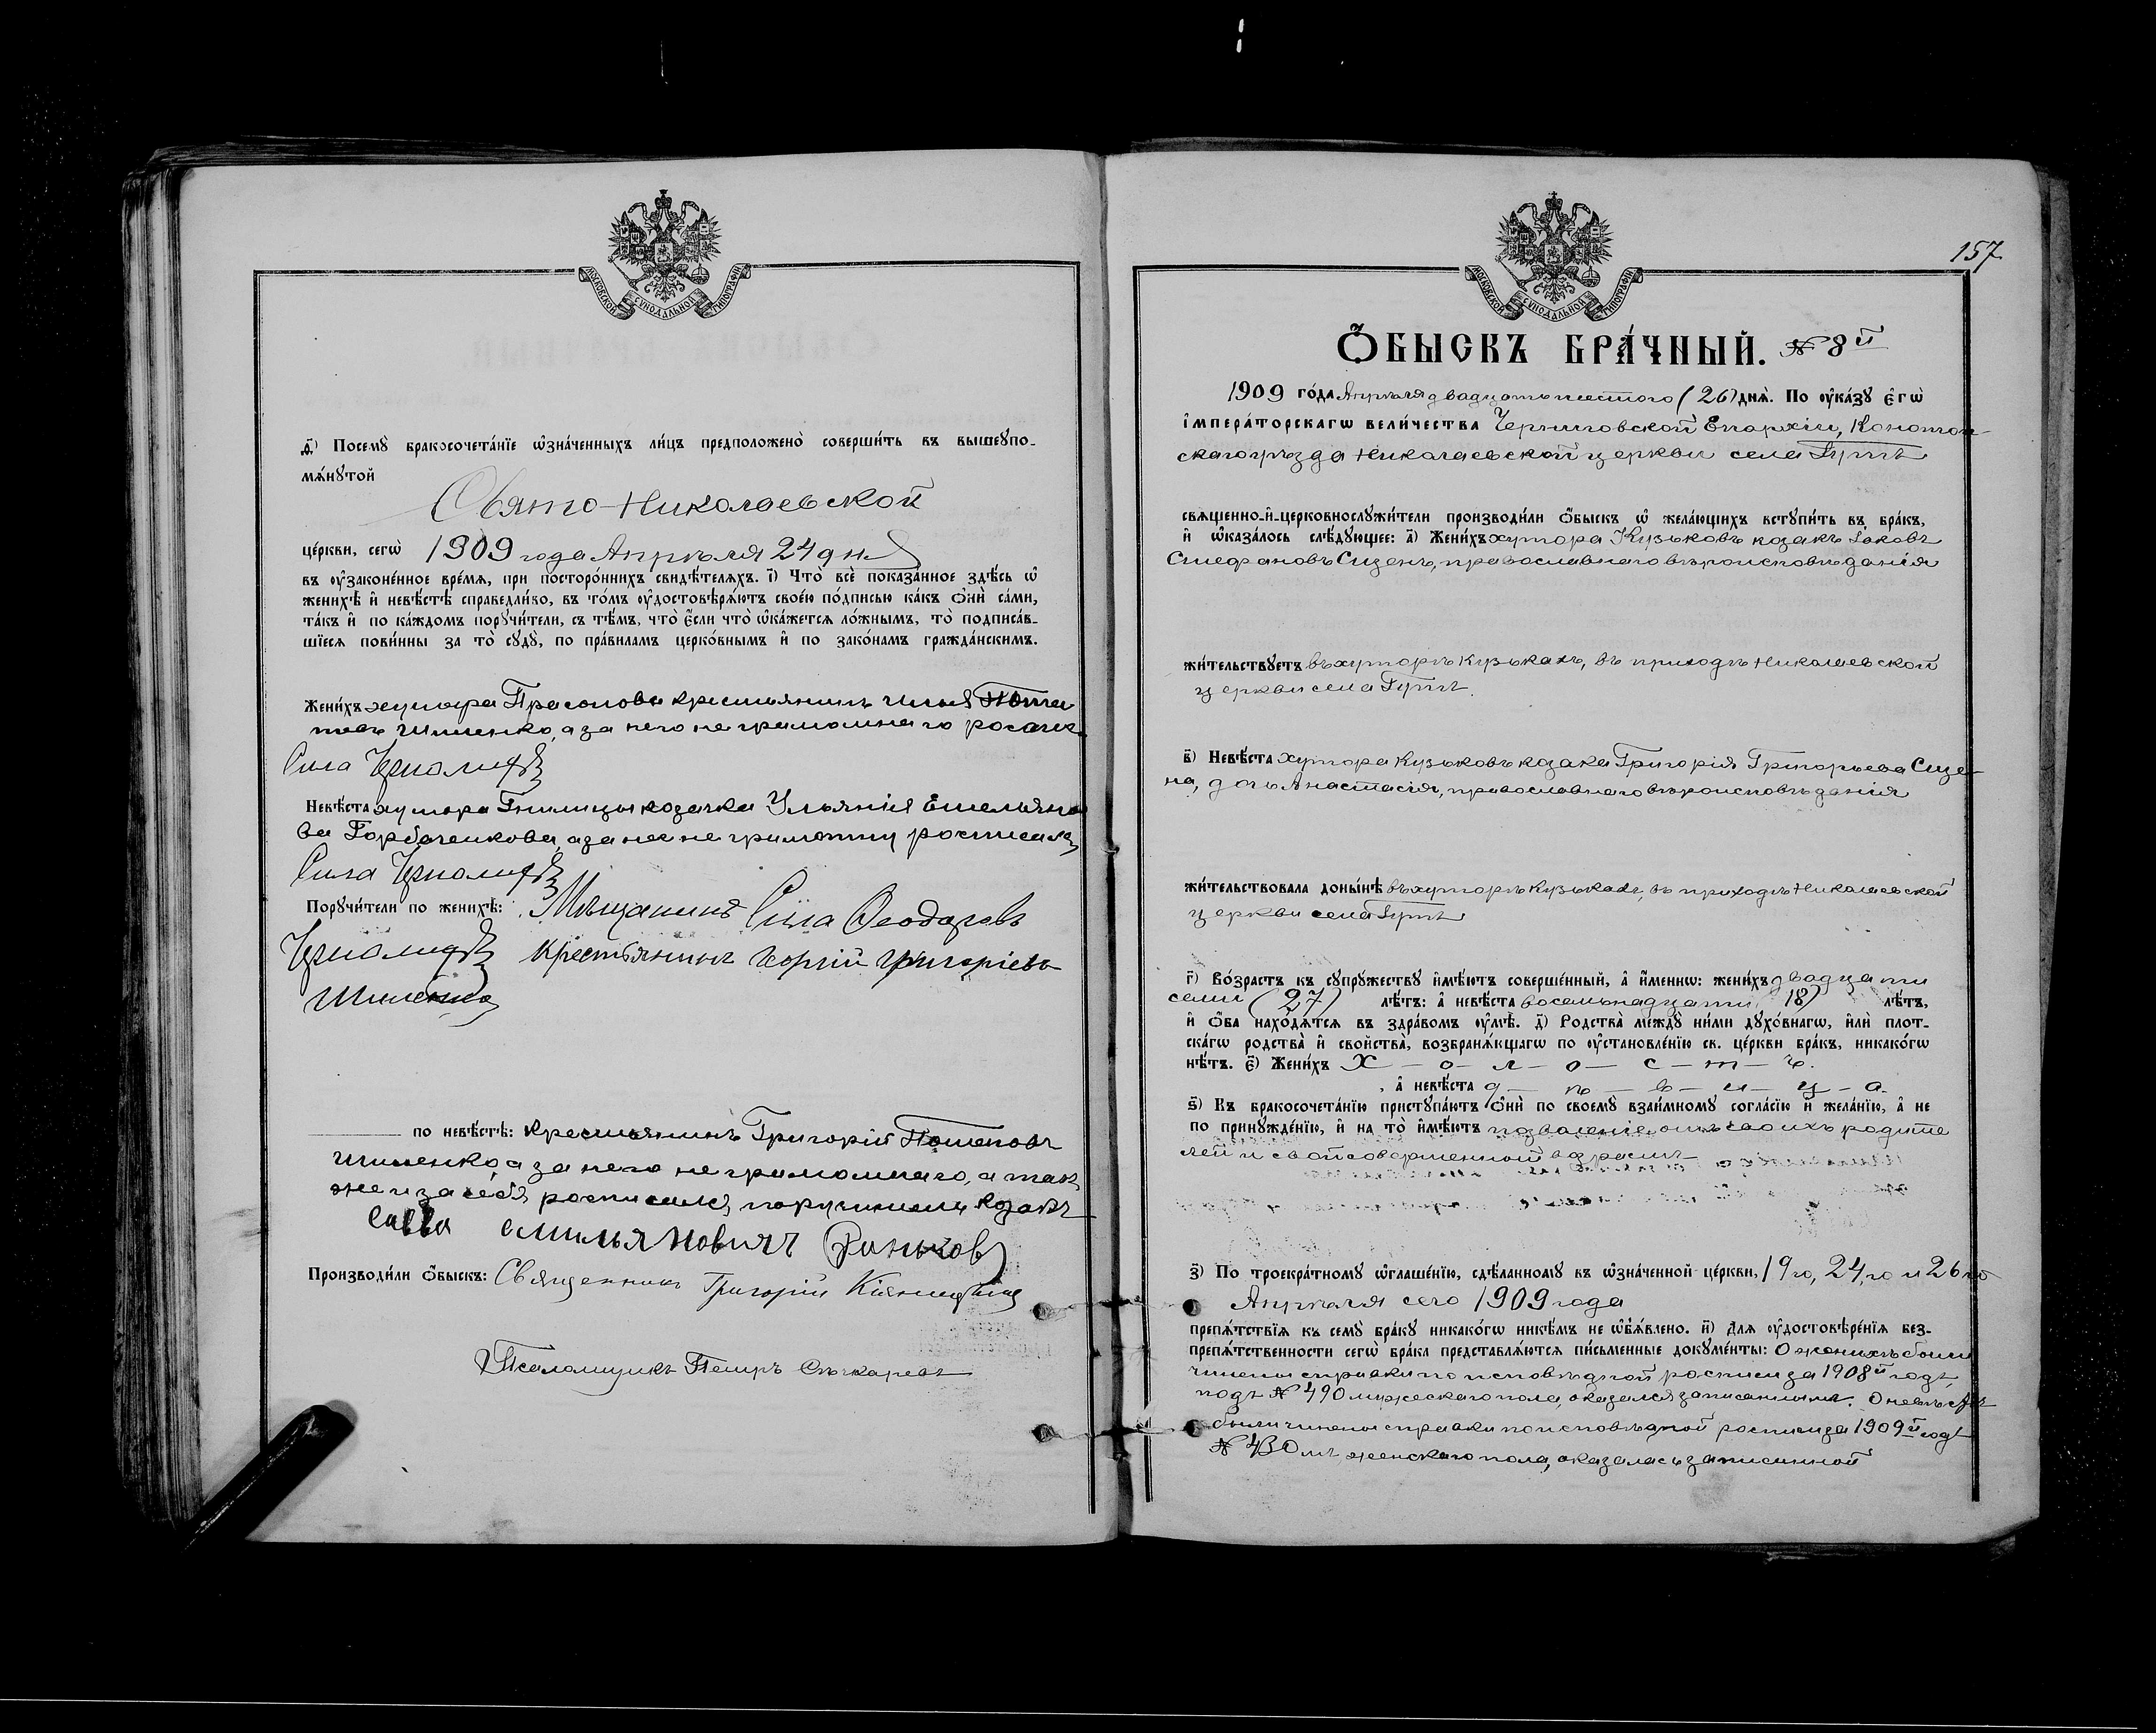 МОСКОВСКОЙ СѴНОДАЛЬНОЙ ТИПОГРАФІИ
ѳ҃) Посемꙋ̀ бракосочета́нїе ѡ҆зна́ченныхъ ли́цъ предположено̀ соверши́ть въ вышеꙋпо-
мѧ́нꙋтой
Свято-Николаевской
це́ркви, сегѡ̀ 1909 года Апрѣля 24 дня
въ ᲂу҆зако́ненное вре́мѧ, при посторо́ннихъ свидѣ́телѧхъ. і҃) Что̀ всѐ пока́занное здѣ́сь ѡ҆
женихѣ̀ и҆ невѣ́стѣ справедли́во, въ то́мъ ᲂу҆достовѣрѧ́ютъ свое́ю по́дписью ка́къ ѻ҆нѝ са́ми,
та́къ и҆ по ка́ждомъ порꙋчи́тели, съ тѣ́мъ, что̀ є҆́сли что̀ ѡ҆ка́жетсѧ ло́жнымъ, то̀ подписа́в-
шїесѧ пови́нны за то̀ сꙋдꙋ̀, по пра́виламъ церко́внымъ и҆ по зако́намъ гражда́нскимъ.
Жени́хъ хутора Прасолова крестьянинъ Илья Пота
повъ Шиленко, а за него неграмотнаго росписк
Сила
Невѣ́ста хутора Гнилицы козачка Ульянія Емельяно
ва Горбаченкова, а за нее неграмотну росписалъ
Сила
Порꙋчи́тели по женихѣ̀: Мѣщанинъ Сила Ѳеодоровъ
Крестьянинъ Георгій Григоріевъ
Шиленко
по невѣ́стѣ: Крестьянинъ Григорій Потаповъ
Шиленко, а за него неграмотнаго, а так
же и за себя росписался поручитель козакъ
Савва Емильяновичъ Раньков
Производи́ли ѻ҆́быскъ: Священникъ Григорій
Псаломщикъ Петръ Сѣчкаревъ
157
МОСКОВСКОЙ СѴНОДАЛЬНОЙ ТИПОГРАФІИ
Ѻ҆БЫСКЪ БРА́ЧНЫЙ. № 8й
1909 го́да Апрѣля двадцать шестого (26) днѧ̀. По ᲂу҆ка́зꙋ є҆гѡ̀
і҆мпера́торскагѡ вели́чества Черниговской Епархіи, Конотоп-
скаго уѣзда Николаевской церкви села Гутъ
свѧще́нно-и҆-церковнослꙋжи́тели производи́ли ѻ҆́быскъ ѡ҆ жела́ющихъ встꙋпи́ть въ бра́къ,
и҆ ѡ҆каза́лось слѣ́дꙋющее: а҃) Жени́хъ хутора Кузьковъ козакъ Іаковъ
Стефановъ Сизенъ, православнаго вѣроисповѣданія
жи́тельствꙋетъ въ хуторѣ Кузькахъ, въ приходѣ Николаевской
церкви села Гутъ.
в҃) Невѣ́ста хутора Кузьковъ козака Григорія Григорьева Сизе-
на, дочь Анастасія, православнаго вѣроисповѣданія
жи́тельствовала доны́нѣ въ хуторѣ Кузькахъ, въ приходѣ Николаевской
церкви села Гутъ
г҃) Во́зрастъ къ сꙋпрꙋ́жествꙋ и҆мѣ́ютъ соверше́нный, а҆ и҆́меннѡ: жени́хъ двадцати
семи (27) лѣ́тъ: а҆ невѣ́ста восемьнадцати (18) лѣ́тъ,
и҆ ѻ҆́ба нахо́дѧтсѧ въ здра́вомъ ᲂу҆мѣ̀. д҃) Родства̀ междꙋ̀ ни́ми дꙋхо́внагѡ, и҆лѝ плот-
ска́гѡ родства̀ и҆ свойства̀, возбранѧ́ющагѡ по ᲂу҆становле́нїю св. це́ркви бра́къ, никако́гѡ
нѣ́тъ. є҃) Жени́хъ х — о — л — о — с — т — ъ.
, а҆ невѣ́ста д — ѣ — в — и — ц — а.
ѕ҃) Къ бракосочета́нїю пристꙋпа́ютъ ѻ҆нѝ по своемꙋ̀ взаи́мномꙋ согла́сїю и҆ жела́нїю, а҆ не
по принꙋжде́нїю, и҆ на то̀ и҆мѣ́ютъ позволеніе отъ своихъ родите
лей и свой совершенный возрастъ
з҃) По троекра́тномꙋ ѡ҆глаше́нїю, сдѣ́ланномꙋ въ ѡ҆зна́ченной це́ркви, 19 го, 24, го и 26 го
Апрѣля сего 1909 года
препѧ́тствїѧ къ семꙋ̀ бра́кꙋ никако́гѡ никѣ́мъ не ѡ҆б̾ѧ́влено. и҃) Длѧ ᲂу҆достовѣре́нїѧ без-
препѧ́тственности сегѡ̀ бра́ка представлѧ́ютсѧ пи́сьменные докꙋме́нты: О женихѣ были
чинены справки по исповѣдной росписи за 1908й годъ,
подъ № 490 мужескаго пола, оказался записаннымъ. О невѣстѣ
были чинены справки по исповѣдной росписи за 1909й годъ
№ 430 мъ женскаго пола, оказалась записанной